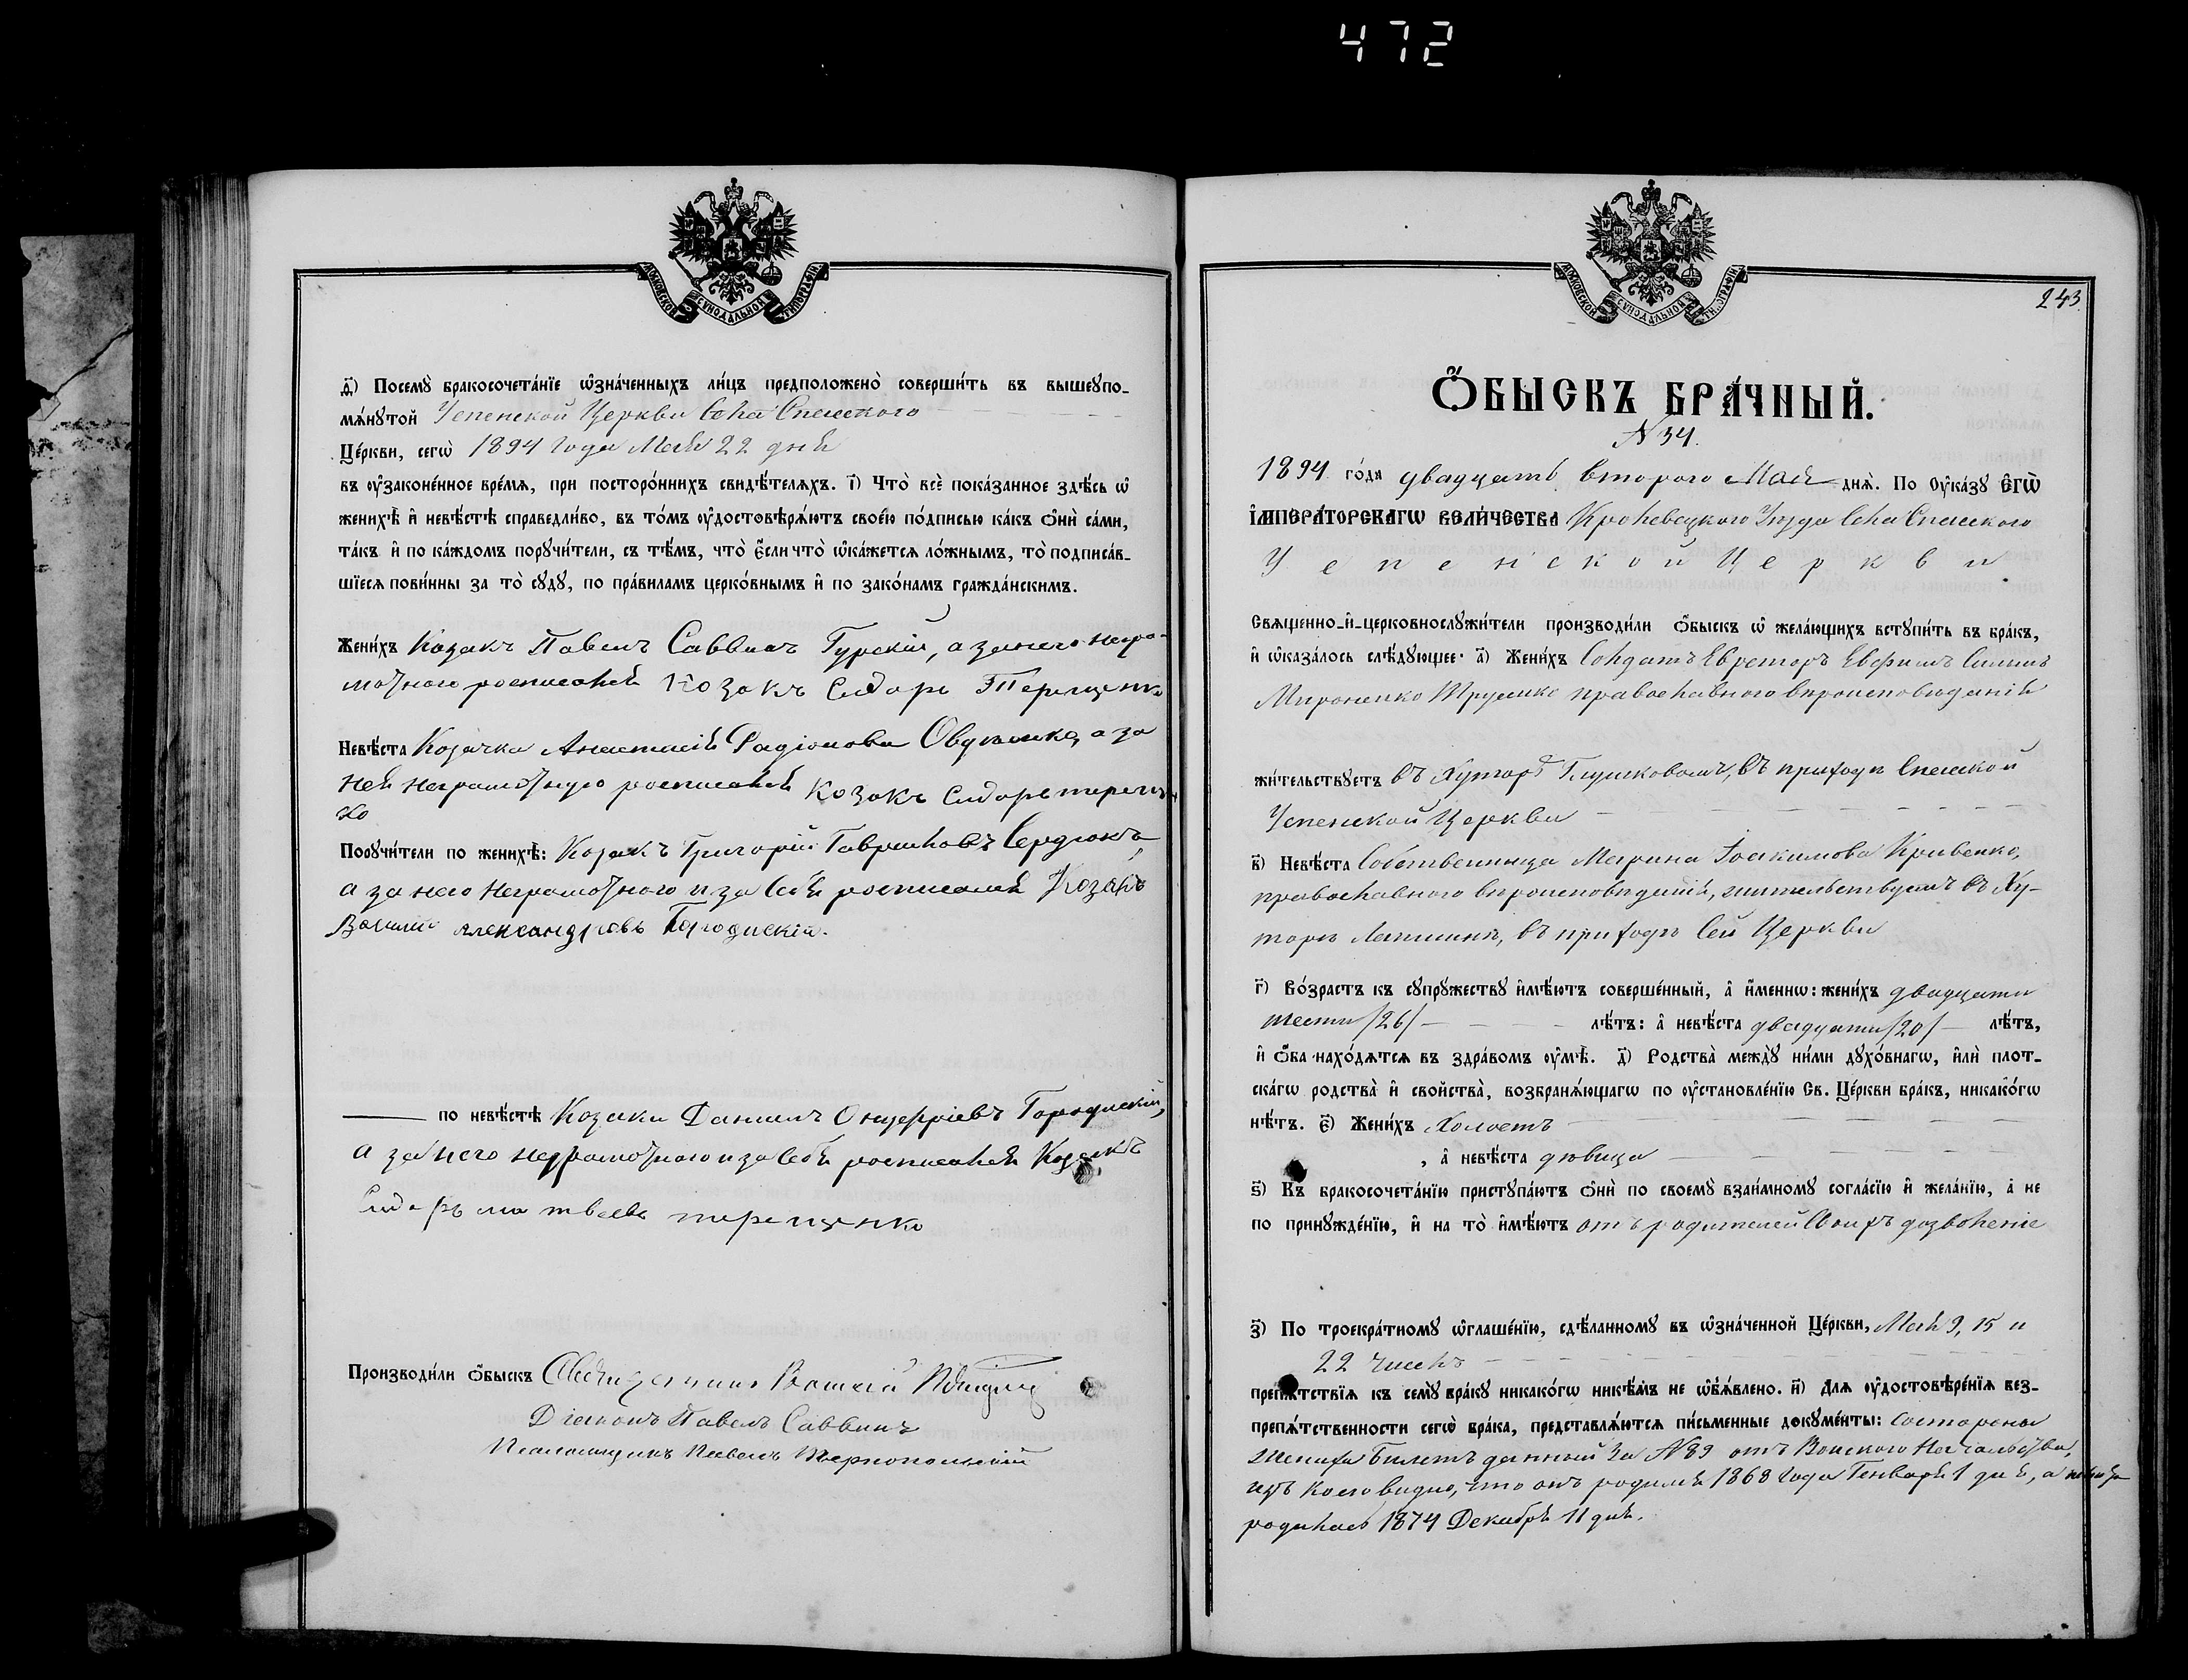 472
МОСКОВСКОЙ СУНОДАЛЬНОЙ ТИПОГРАФІИ
д҃) Посемꙋ̀ бракосочета́нїе ѡ҆зна́ченныхъ ли́цъ предположено̀ соверши́ть въ вышеꙋпо-
мѧ́нꙋтой Успенской Церкви Села Спасского
Це́ркви, сегѡ̀ 1894 года Мая 22 дня
въ ᲂу҆законе́нное вре́мѧ, при посторо́ннихъ свидѣ́телѧхъ. і҃) Что̀ всѐ пока́занное здѣ́сь ѡ҆
женихѣ̀ и҆ невѣ́стѣ справедли́во, въ то́мъ ᲂу҆достовѣрѧ́ютъ свое́ю по́дписью ка́къ ѻ҆нѝ са́ми,
та́къ и҆ по ка́ждомъ порꙋчи́тели, съ тѣ́мъ, что̀ є҆́сли что̀ ѡ҆ка́жетсѧ ло́жнымъ, то̀ подписа́в-
шїесѧ пови́нны за то̀ сꙋдꙋ̀, по пра́виламъ церко́внымъ и҆ по зако́намъ гражда́нскимъ.
Жени́хъ Козакъ Павелъ Саввинъ Гурскій, а за него негра-
мотного росписался Козакъ Сидоръ Терещенко
Невѣ́ста Козачка Анастасія Радіонова Овдѣенко, а за
нея неграмотную росписался козакъ Сидоръ терещен
ко
Порꙋчи́тели по женихѣ̀: Козакъ Григорій Гавриловъ Сердюкъ,
а за него неграмотного и за себя росписался Козакъ
Василій Александровъ Городискій.
по невѣ́стѣ Козаки Даніилъ Онуфріевъ Городискій,
а за него неграмотного и за себя росписался Козакъ
Сидоръ матвеевъ терещенко
Производи́ли ѻ҆́быскъ Священникъ
Діаконъ Павелъ Саввинъ
Псаломщикъ Павелъ Тернопольскій
МОСКОВСКОЙ СУНОДАЛЬНОЙ ТИПОГРАФІИ
243.
Ѻ҆́БЫСКЪ БРА́ЧНЫЙ.
N 34.
1894 го́да двадцать второго Мая днѧ̀. По ᲂу҆ка́зꙋ Є҆ГѠ̀
І҆МПЕРА́ТОРСКАГѠ ВЕЛИ́ЧЕСТВА Кролевецкого Уѣзда Села Спасского
Успенской Церкви
Свѧщенно-и҆-церковнослꙋжи́тели производи́ли ѻ҆́быскъ ѡ҆ жела́ющихъ встꙋпи́ть въ бра́къ,
и҆ ѡ҆каза́лось слѣ́дꙋющее: а҃) Жени́хъ Солдатъ Ефрейторъ Евфимъ
Мироненко православного вѣроисповѣданія
жи́тельствꙋетъ въ Хуторѣ Глушковомъ, въ приходѣ Спасской
Успенской Церкви
в҃) Невѣ́ста Собственница Марина Іоакимова Кривенко,
православного вѣроисповѣданія, жительствуетъ въ Ху-
торѣ Лапшинѣ, въ приходѣ сей Церкви
г҃) Во́зрастъ къ сꙋпрꙋ́жествꙋ и҆мѣ́ютъ соверше́нный, а҆ и҆́меннѡ: жени́хъ двадцати
шести /26/ лѣ́тъ: а҆ невѣ́ста двадцати /20/ лѣ́тъ,
и҆ ѻ҆́ба нахо́дѧтсѧ въ здра́вомъ ᲂу҆мѣ̀. д҃) Родства̀ междꙋ̀ ни́ми дꙋхо́внагѡ, и҆лѝ плот-
ска́гѡ родства̀ и҆ свойства̀, возбранѧ́ющагѡ по ᲂу҆становле́нїю Св. Це́ркви бра́къ, никако́гѡ
нѣ́тъ. є҃) Жени́хъ Холостъ
, а҆ невѣ́ста дѣвица
ѕ҃) Къ бракосочета́нїю пристꙋпа́ютъ ѻ҆нѝ по своемꙋ̀ взаи́мномꙋ согла́сїю и҆ жела́нїю, а҆ не
по принꙋжде́нїю, и҆ на то̀ и҆мѣ́ютъ отъ родителей своихъ дозволеніе
з҃) По троекра́тномꙋ ѡ҆глаше́нїю, сдѣ́ланномꙋ въ ѡ҆зна́ченной Це́ркви, Мая 9, 15 и
22 числъ
препѧ́тствїѧ къ семꙋ̀ бра́кꙋ никако́гѡ никѣ́мъ не ѡ҆б̾ѧ́влено. и҃) Длѧ ᲂу҆достовѣре́нїѧ без-
препѧ́тственности сегѡ̀ бра́ка, представлѧ́ютсѧ пи́сьменные докꙋме́нты: Со стороны
жениха Билетъ данный за N 89 отъ Воинского Начальства,
изъ коего видно, что онъ родился 1868 года Генваря 1 дня, а невѣста
родилась 1874 Декабря 11 дня.